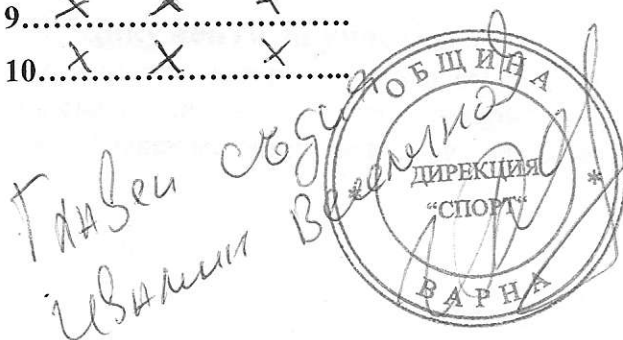 9.....х.........х..........х.........
10....х.........х..........х.........
Главен съдия
Ивелин Веселинов
ОБЩИНА
ДИРЕКЦИЯ
“СПОРТ“
ВАРНА